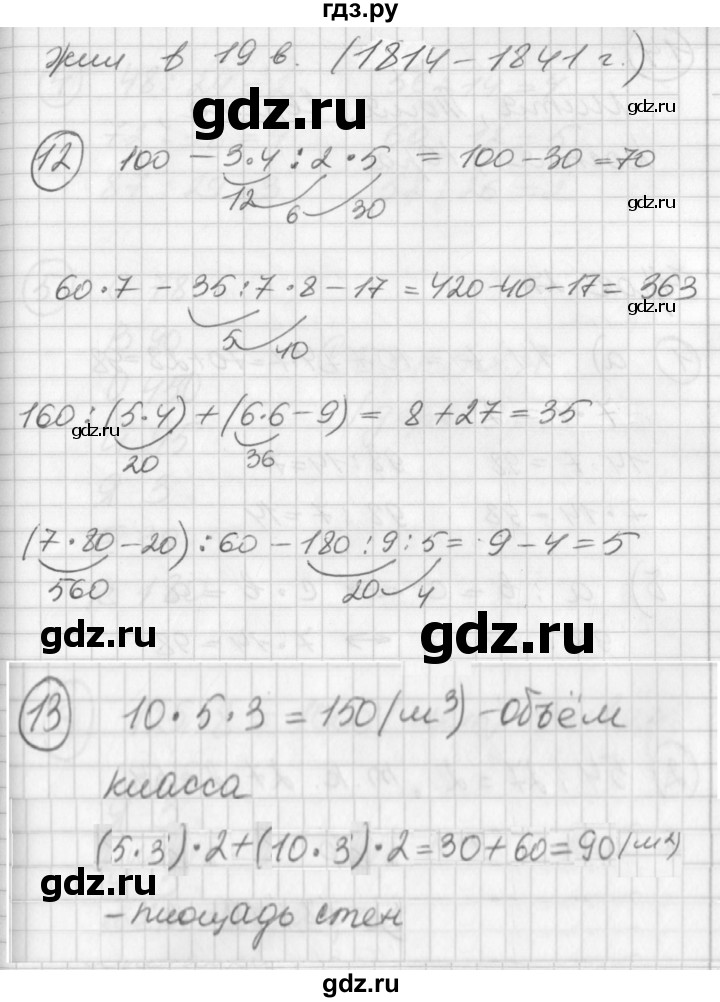 гдз.ру
жил в 19 в. (1814-1841 г.)
gdz.ru
gdz.ru
12 100 - 3•4 : 2 • 5 = 100-30 = 70
12 6 30
gdz.ru
60•7 - 35:7•8-17 = 420-40-17= 363
gdz.ru
5 40
160:(5•4)+(6•6-9) = 8+27=35
gdz.ru
20 36
gdz.ru
(7•80-20):60 - 180:9:5= 9-4=5
560 20 4
gdz.ru
gdz.ru
13 10•5•3 = 150(м³) - объём
класса
(5•3)•2+(10•3)•2=30+60=90(м²)
gdz.ru
- площадь стен
gdz.ru
gdz.ru